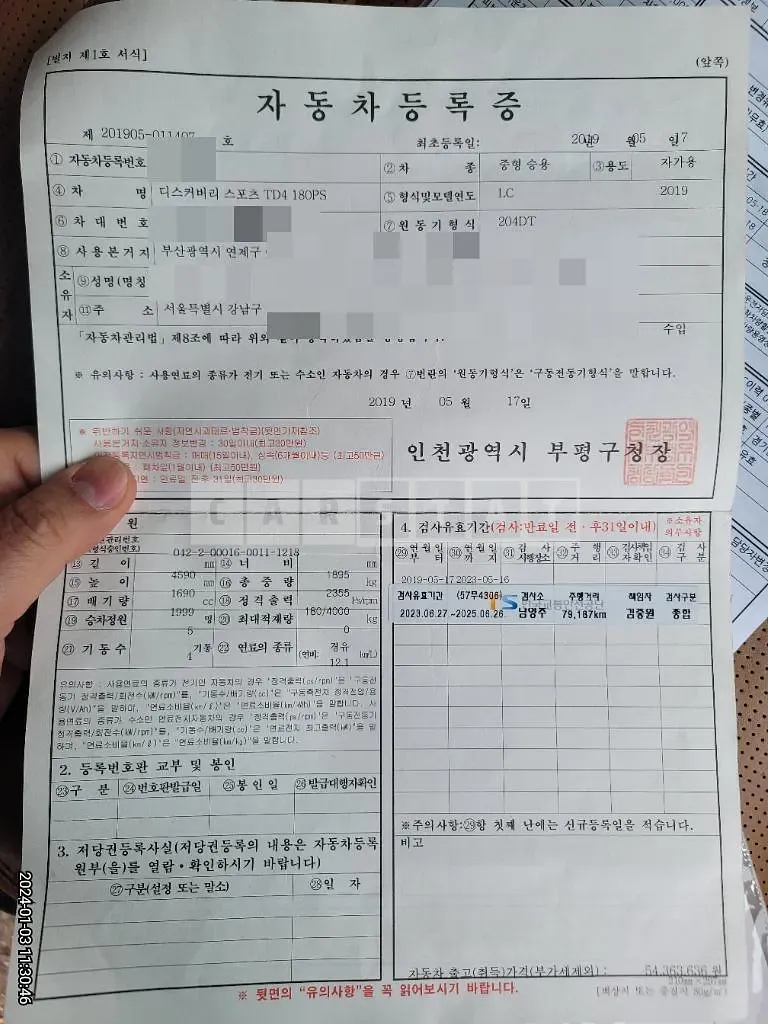 [별지 제1호 서식]
(앞쪽)
자동차등록증
제 201905-011407 호
최초등록일: 2019 년 월 05 일 17
① 자동차등록번호 ② 차 종 중형 승용 ③용도 자가용
④ 차 명 디스커버리 스포츠 TD4 180PS ⑤ 형식및모델연도 LC 2019
⑥ 차대번호 ⑦ 원동기형식 204DT
⑧ 사용본거지 부산광역시 연제구
소유자 ⑨성명(명칭
⑪주 소 서울특별시 강남구
「자동차관리법」 제8조에 따라 위와
수입
※ 유의사항 : 사용연료의 종류가 전기 또는 수소인 자동차의 경우 ⑦번란의 '원동기형식'은 '구동전동기형식'을 말합니다.
2019 년 05 월 17일
※ 위반하기 쉬운 사항(지연시과태료·범칙금)(뒷면기재참조)
사용본거지·소유자 정보변경 : 30일이내(최고30만원)
이전등록지연시범칙금 : 매매(15일이내), 상속(6개월이내)등 (최고50만금)
폐차일(1월이내) (최고50만원)
지연 : 만료일 전·후 31일(최고30만원)
인천광역시 부평구청장
원
관리번호
(형식승인번호) 042-2-00016-0011-1218
⑬ 길 이 4590 mm ⑭ 너 비 1895 mm
⑮ 높 이 1690 mm ⑯ 총 중 량 2355 kg
⑰ 배기량 1999 cc ⑱ 정격출력 180/4000 Ps/rpm
⑲ 승차정원 5 명 ⑳ 최대적재량 0 kg
㉑ 기통수 4 기통 ㉒ 연료의 종류 경유 (연비: 12.1 km/L)
유의사항 : 사용연료의 종류가 전기인 자동차의 경우 "정격출력(ps/rpm)"은 "구동전
동기 정격출력/회전수(kW/rpm)"를, "기통수/배기량(cc)"은 "구동축전지 정격전압/용
량(V/Ah)"을 말하며, "연료소비율(km/ℓ)"은 "연료소비율(km/kWh)"을 말합니다. 사
용연료의 종류가 수소인 연료전지자동차의 경우 "정격출력(ps/rpm)"은 "구동전동기
정격출력/회전수(kW/rpm)"를, "기통수/배기량(cc)"은 "연료전지 최고출력(kW)"을 말
하며, "연료소비율(km/ℓ)"은 "연료소비율(km/kg)"을 말합니다.
2. 등록번호판 교부 및 봉인
㉓구 분 ㉔번호판발급일 ㉕봉 인 일 ㉖발급대행자확인
3. 저당권등록사실(저당권등록의 내용은 자동차등록
원부(을)를 열람·확인하시기 바랍니다)
㉗구분(설정 또는 말소) ㉘일 자
4. 검사유효기간(검사:만료일 전·후31일이내) ※소유자 의무사항
㉙연월일부터 ㉚연월일까지 ㉛검사시행장소 ㉜주행거리 ㉝검사책임자확인 ㉞검사구분
2019-05-17 2023-05-16
검사유효기간 (57무4306) 검사소 주행거리 책임자 검사구분
2023.06.27 ~2025.06.26. 남양주 79,187km 김중원 종합
한국교통안전공단
※주의사항:㉙항 첫째 난에는 신규등록일을 적습니다.
비고
자동차 출고(취득)가격(부가세제외) : 54,363,636 원
210mm×297mm
[백상지 또는 중질지 80g/㎡]
※ 뒷면의 "유의사항"을 꼭 읽어보시기 바랍니다.
CARSTAR
2024-01-03 11:30:46